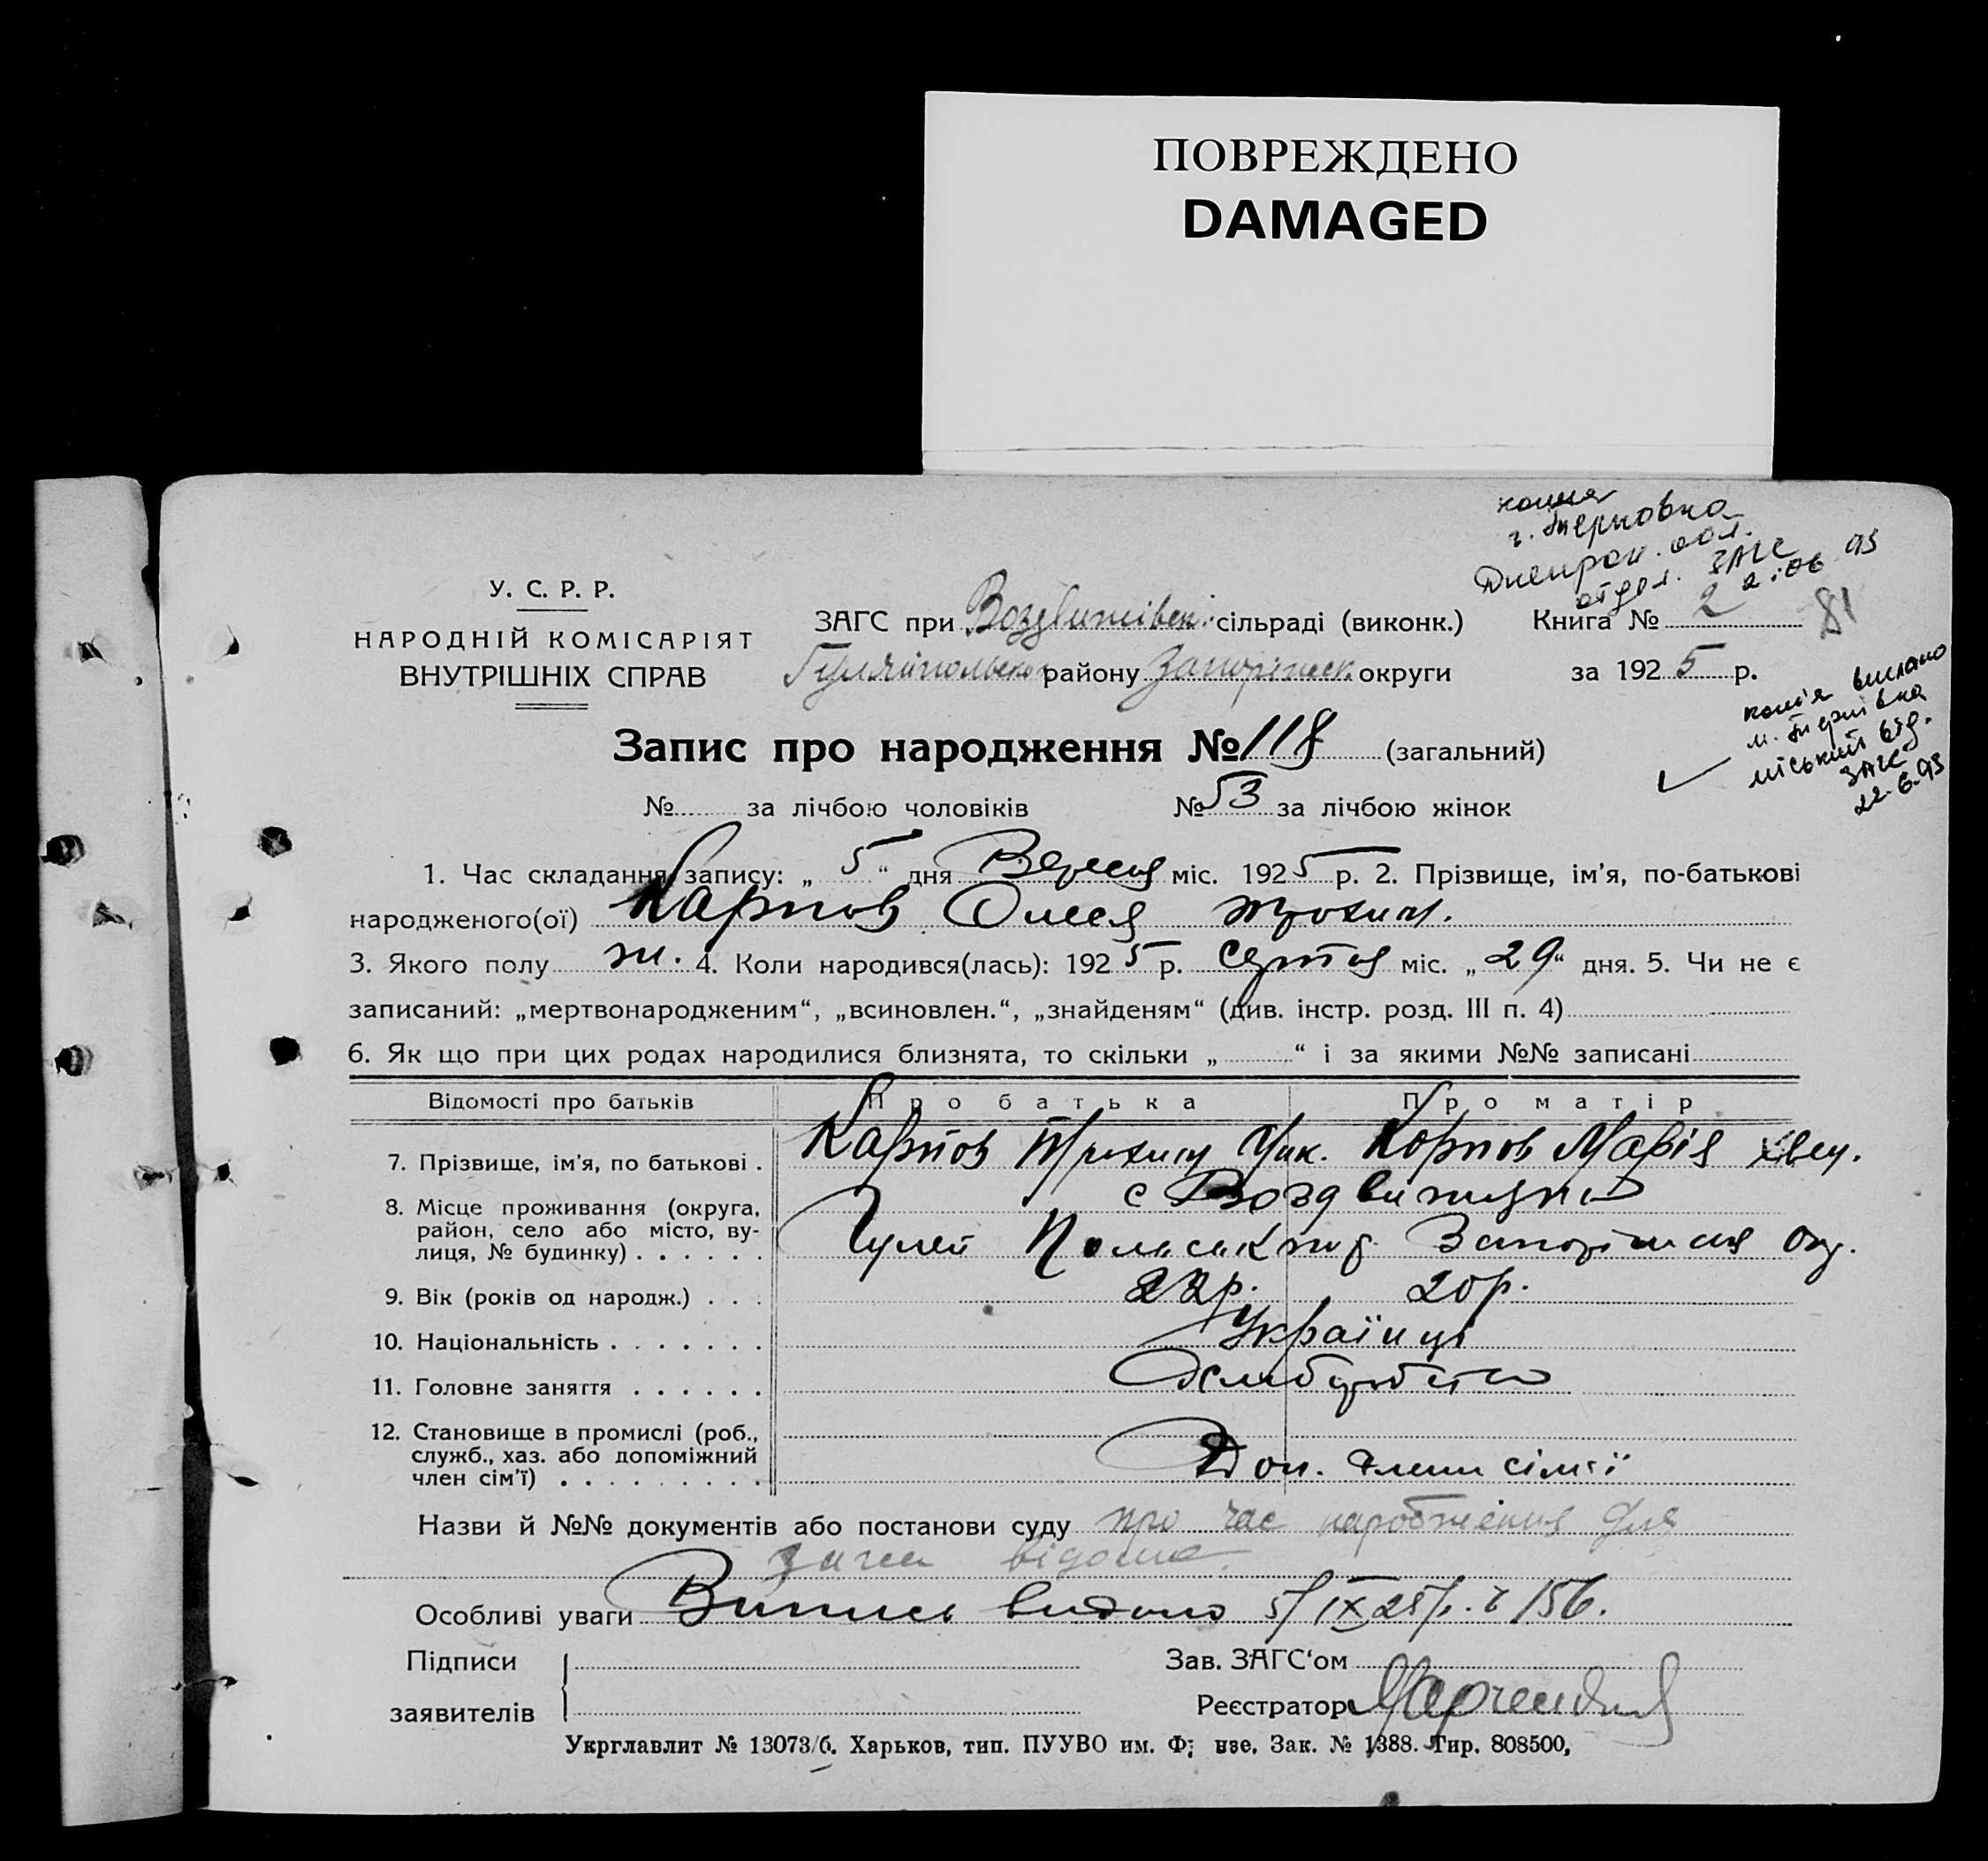 ПОВРЕЖДЕНО
DAMAGED
копия
г. Терновка
Днепроп. обл.
отдел. ЗАГС
22.06.93
У. С. Р. Р.
НАРОДНІЙ КОМІСАРІЯТ
ВНУТРІШНІХ СПРАВ
ЗАГС при Воздвижівськ. сільраді (виконк.) Книга № 2 81
Гуляйпольськ району Запоріжськ. округи за 1925 р.
копія вислано
м. Тернівка
міський від.
ЗАГС
22.6.93
Запис про народження № 118 (загальний)
№ за лічбою чоловіків № 53 за лічбою жінок
1. Час складання запису: „ 5 “ дня Вересня міс. 1925 р. 2. Прізвище, ім’я, по-батькові
народженого(ої) Карпов Олеся Трохим.
3. Якого полу ж. 4. Коли народився(лась): 1925 р. Серпня міс. „ 29 “ дня. 5. Чи не є
записаний: „мертвонародженим“, „всиновлен.“, „знайденям“ (див. інстр. розд. III п. 4)
6. Як що при цих родах народилися близнята, то скільки „ “ і за якими №№ записані
Відомості про батьків Про батька Про матір
7. Прізвище, ім’я, по батькові . Карпов Трохим Карпов Марія
8. Місце проживання (округа, с Воздвижущо
район, село або місто, ву-
лиця, № будинку) . . . . . . Гуляй Польськ Запоріжськ Окр.
9. Вік (років од народж.) . . . 22р. 20р.
10. Національність . . . . . . . Українці
11. Головне заняття . . . . . . Хліборобство
12. Становище в промислі (роб.,
служб., хаз. або допоміжний
член сім’ї) . . . . . . . . . Доп. член сім’ї
Назви й №№ документів або постанови суду про час народження для
загса відомо.
Особливі уваги Випись видано 5/IX 25р. № 156.
Підписи Зав. ЗАГС‘ом
заявителів Реєстратор
Укрглавлит № 13073/б. Харьков, тип. ПУУВО им. Ф нзе. Зак. № 1388. Тир. 808500,